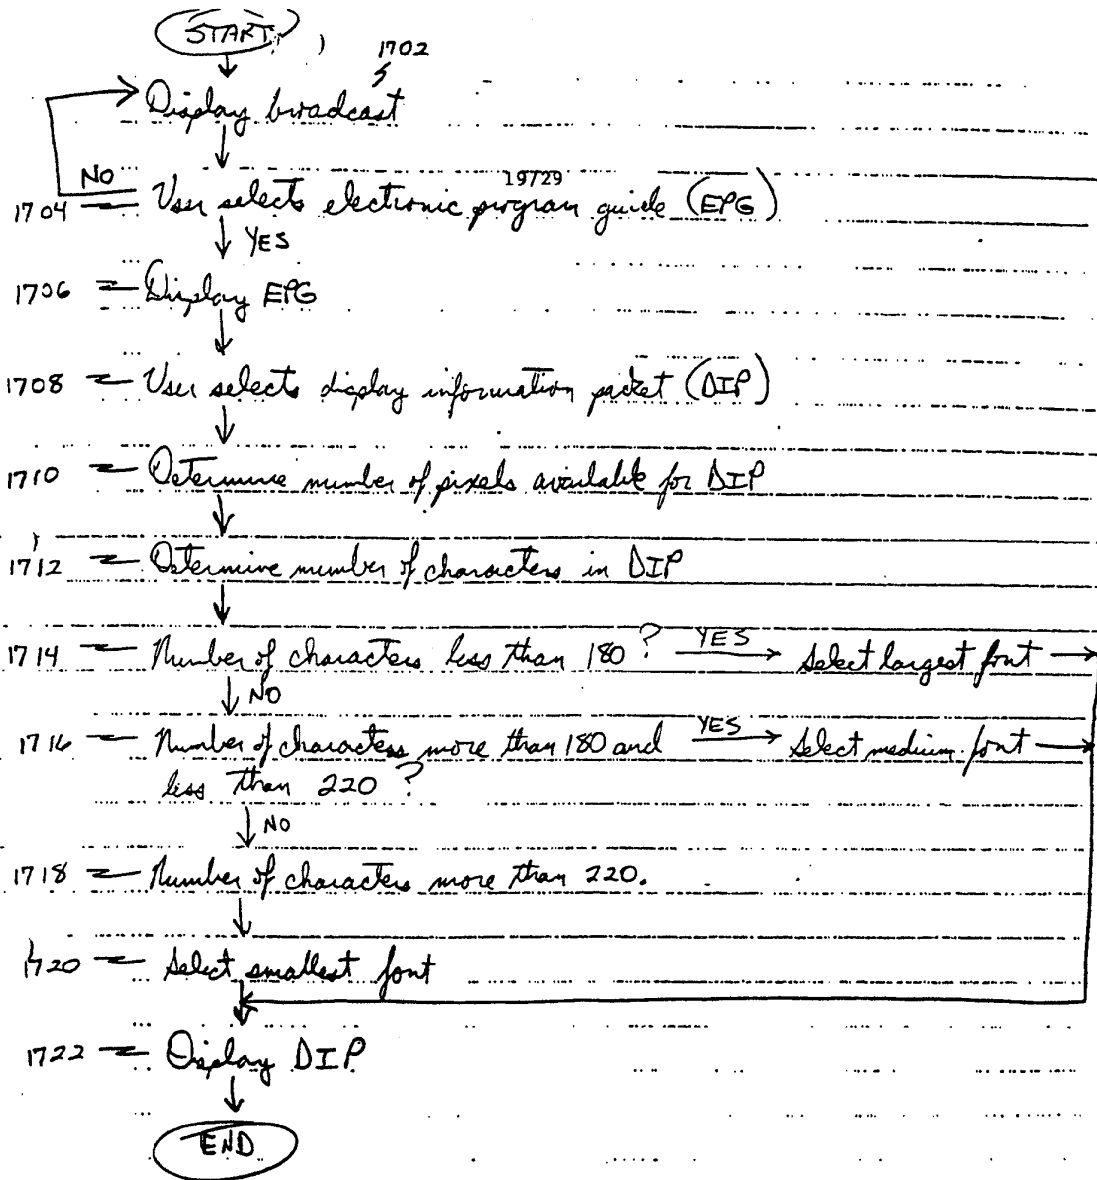 START
1702
Display broadcast
NO
19/29
1704 User selects electronic program guide (EPG)
YES
1706 Display EPG
1708 User selects display information packet (DIP)
1710 Determine number of pixels available for DIP
1712 Determine number of characters in DIP
1714 Number of characters less than 180? YES Select largest font
NO
1716 Number of characters more than 180 and YES Select medium font
less than 220?
NO
1718 Number of characters more than 220.
1720 Select smallest font
1722 Display DIP
END